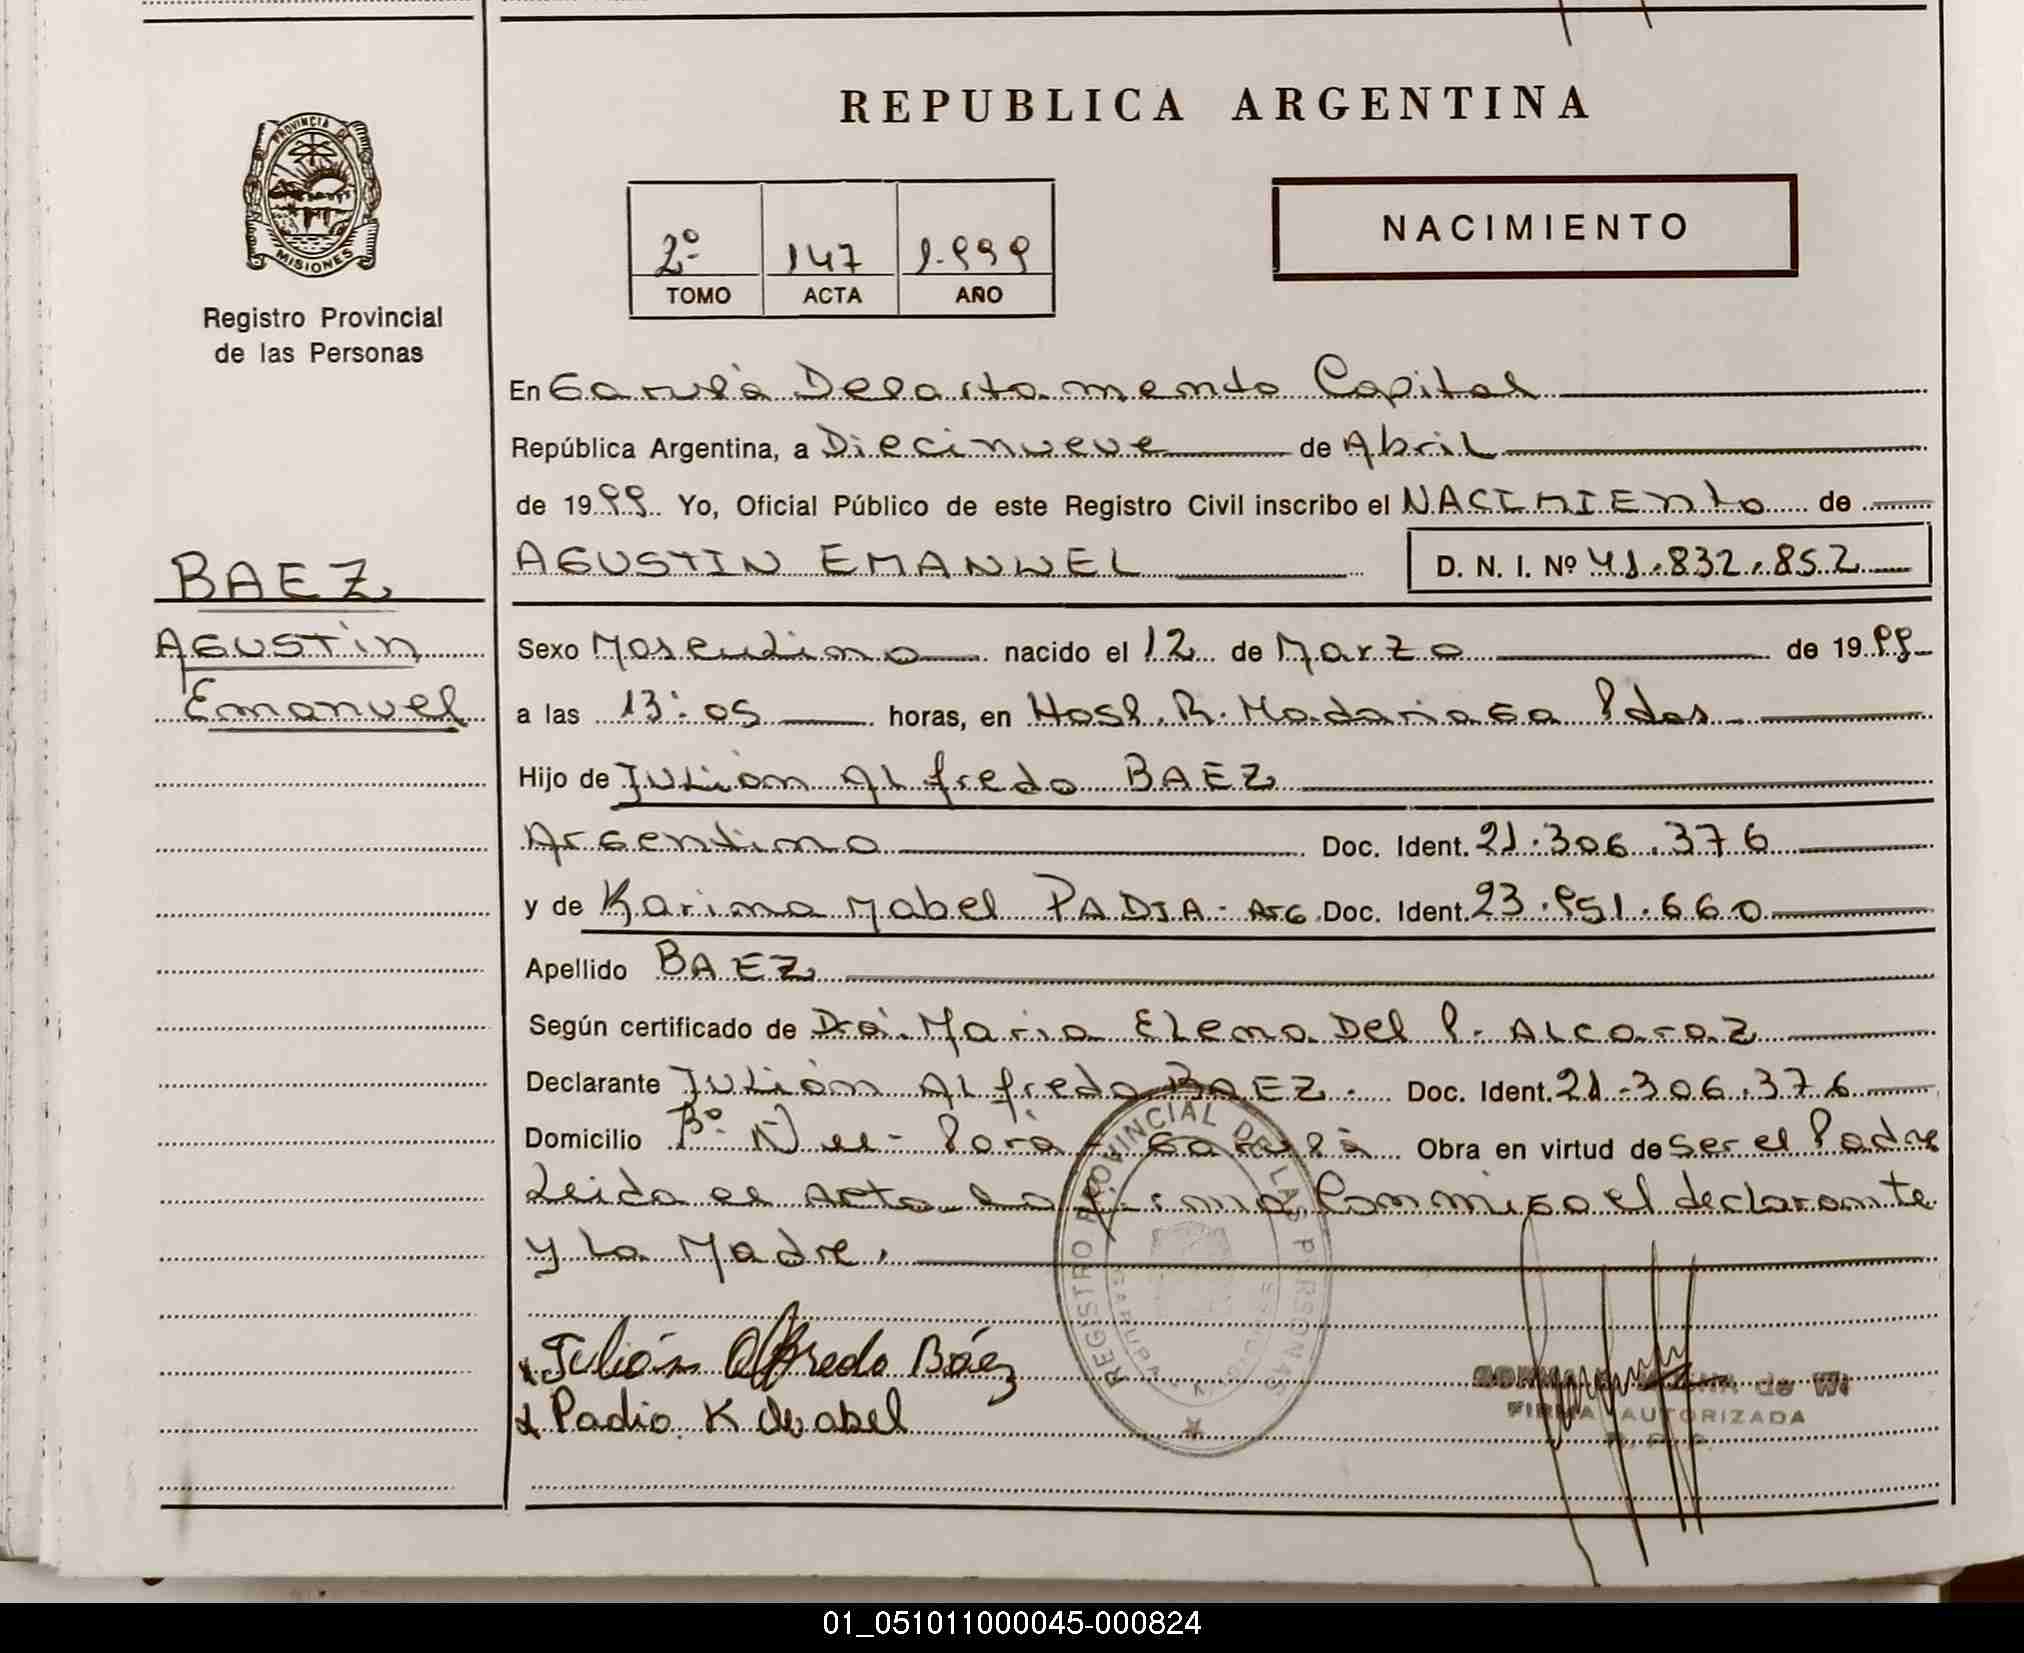 REPUBLICA ARGENTINA
PROVINCIA DE
MISIONES
Registro Provincial
de las Personas
2º 147 1.999
TOMO ACTA AÑO
NACIMIENTO
En Garupá Departamento Capital
República Argentina, a Diecinueve de Abril
de 1999. Yo, Oficial Público de este Registro Civil inscribo el NACIMIENTO de
BAEZ
AGUSTIN
Emanuel
AGUSTIN EMANUEL D. N. I. Nº 41.832.852
Sexo Masculino nacido el 12 de Marzo de 1999
a las 13:05 horas, en Hosp. R. Madariaga Pdas
Hijo de Julián Alfredo BAEZ
Argentino Doc. Ident. 21.306.376
y de Karina Mabel PADJA - Arg Doc. Ident. 23.951.660
Apellido BAEZ
Según certificado de Dra. Maria Elena Del P. ALCARAZ
Declarante Julián Alfredo BAEZ. Doc. Ident. 21.306.376
Domicilio Bº Ñu - Porá - Garupá Obra en virtud de ser el Padre
Leida el Acta la firma Conmigo el declarante
y La Madre.
REGISTRO PROVINCIAL DE LAS PERSONAS
GARUPA - MISIONES
x Julián Alfredo Báez
x Padjo K Mabel
de
FIRMA AUTORIZADA
01_051011000045-000824